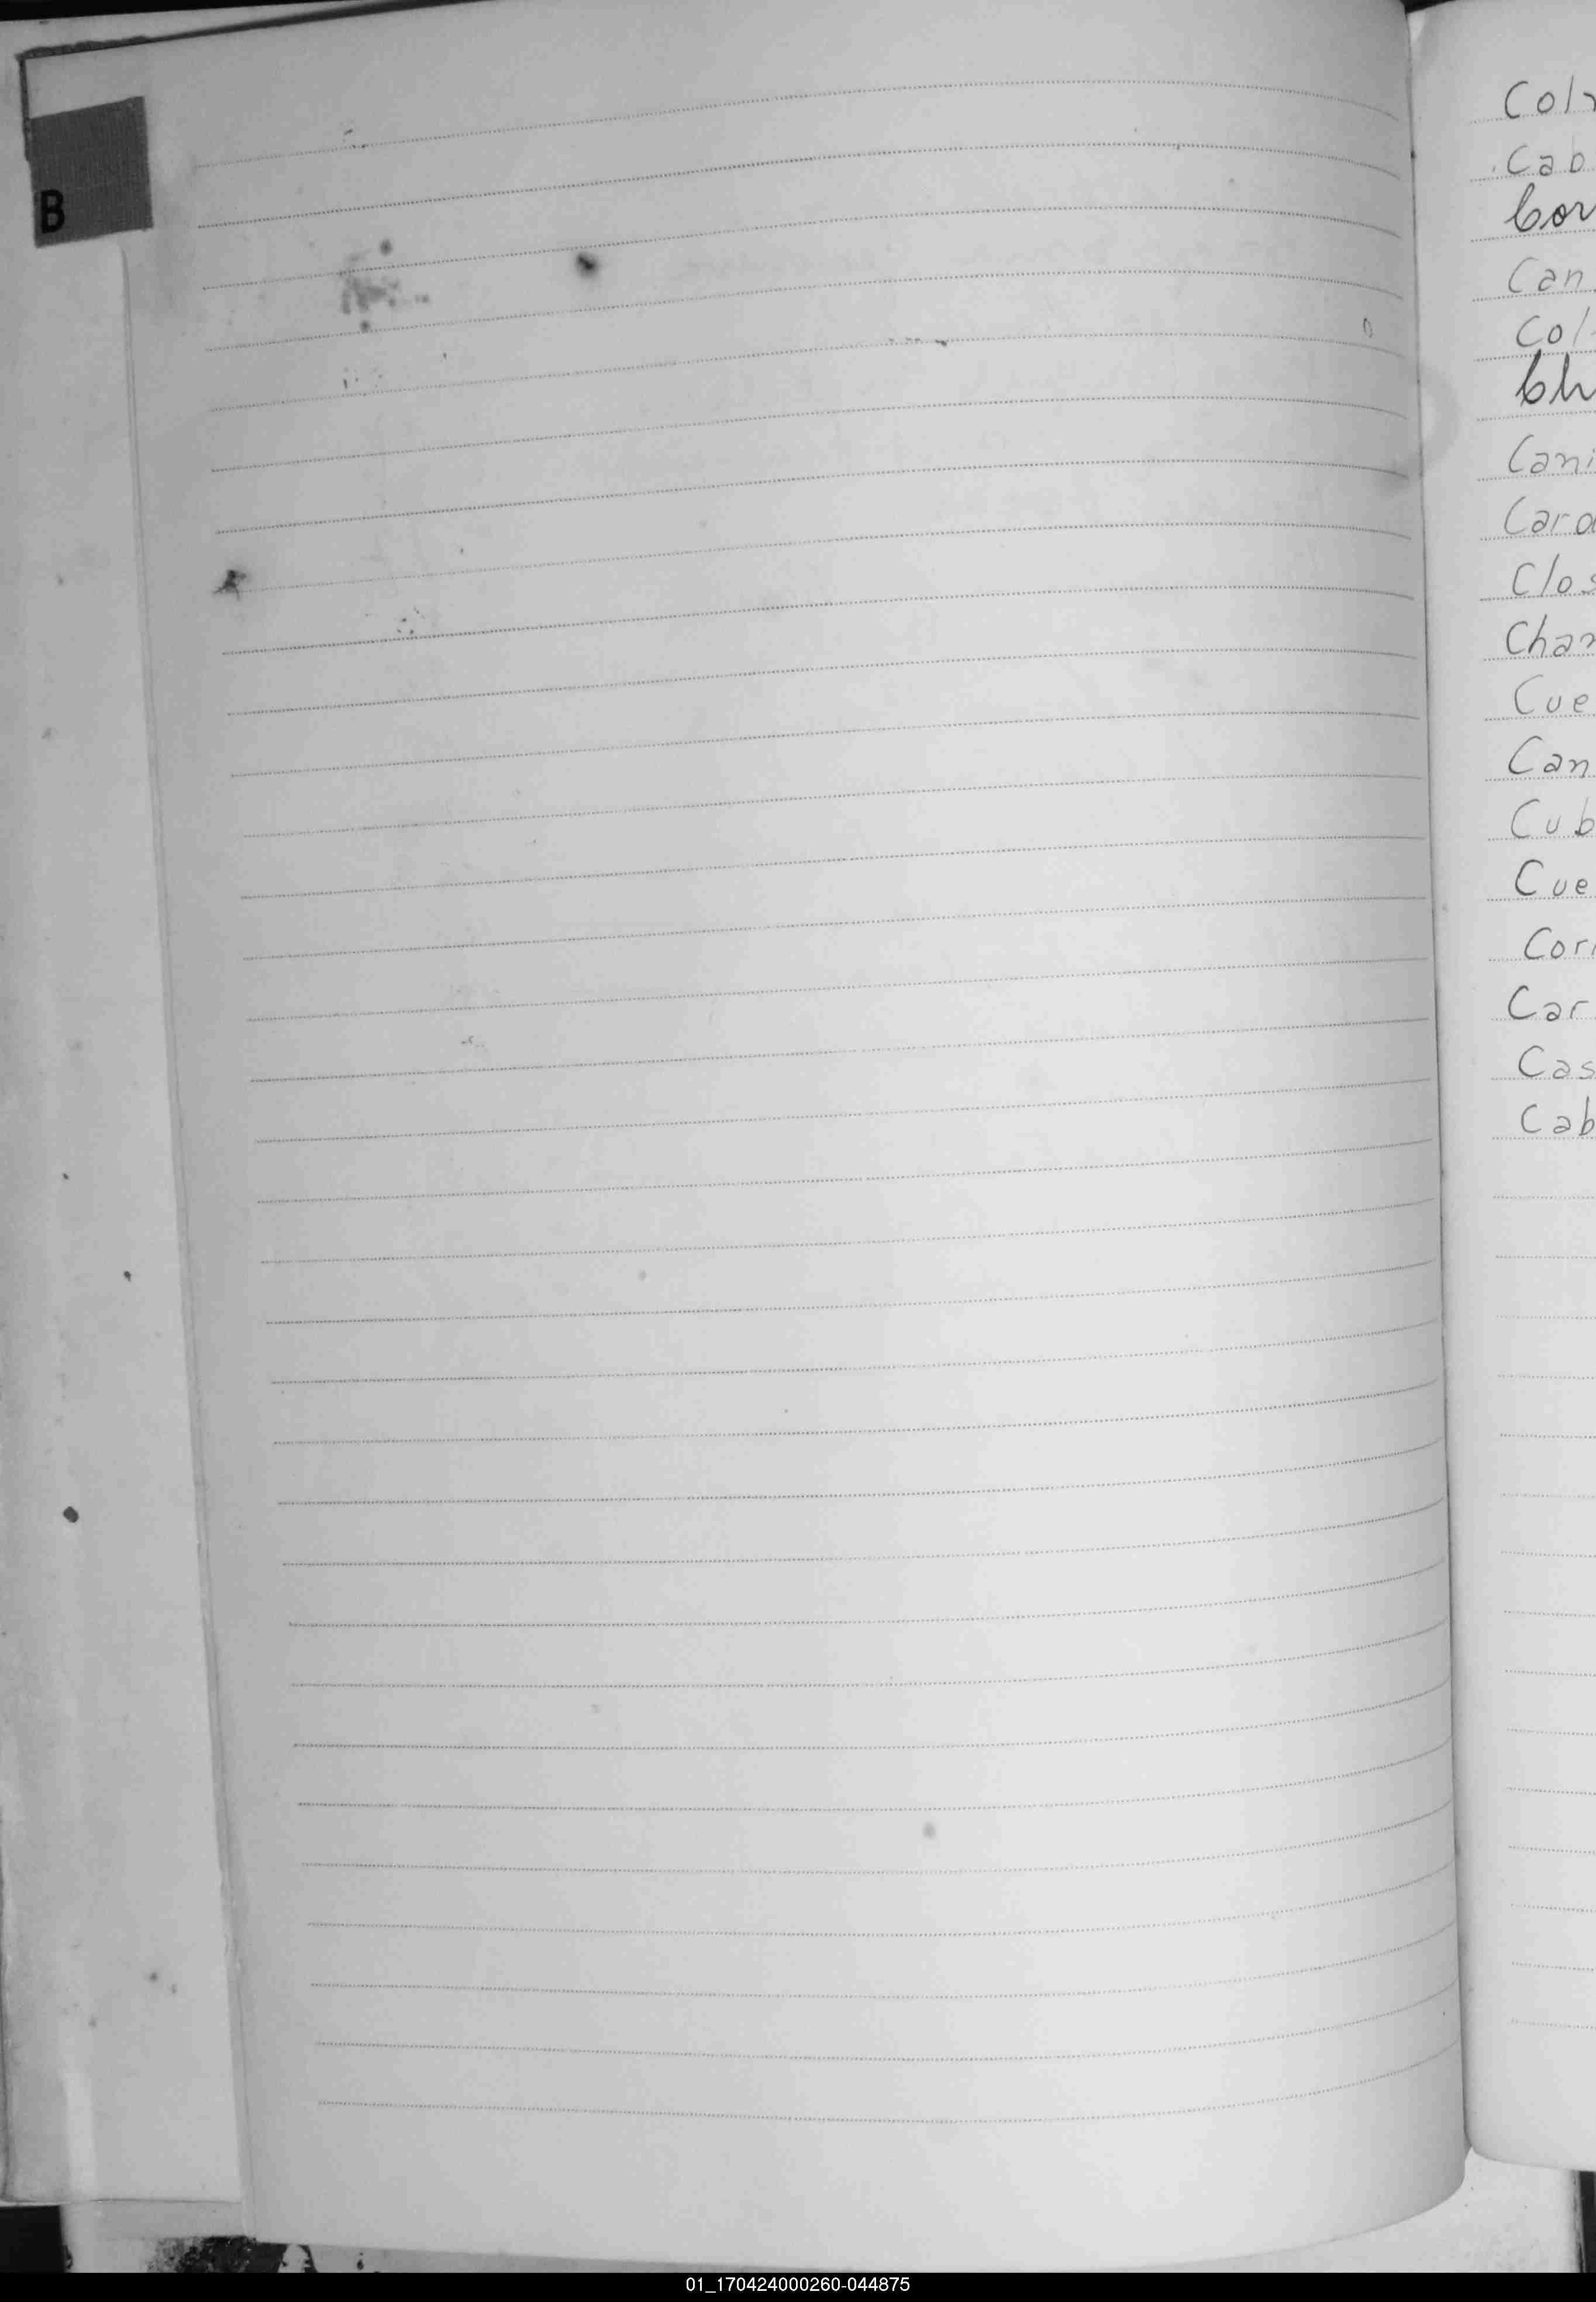 B
Col
Cab
Cor
Can
Col
Ch
Cani
Caro
Clos
Chan
Cue
Can
Cub
Cue
Cor
Car
Cas
Cab
01_170424000260-044875